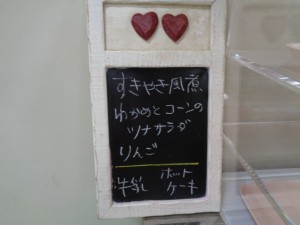 すきやき風煮
わかめとコーンの
ツナサラダ
りんご
牛乳 ホット
ケーキ